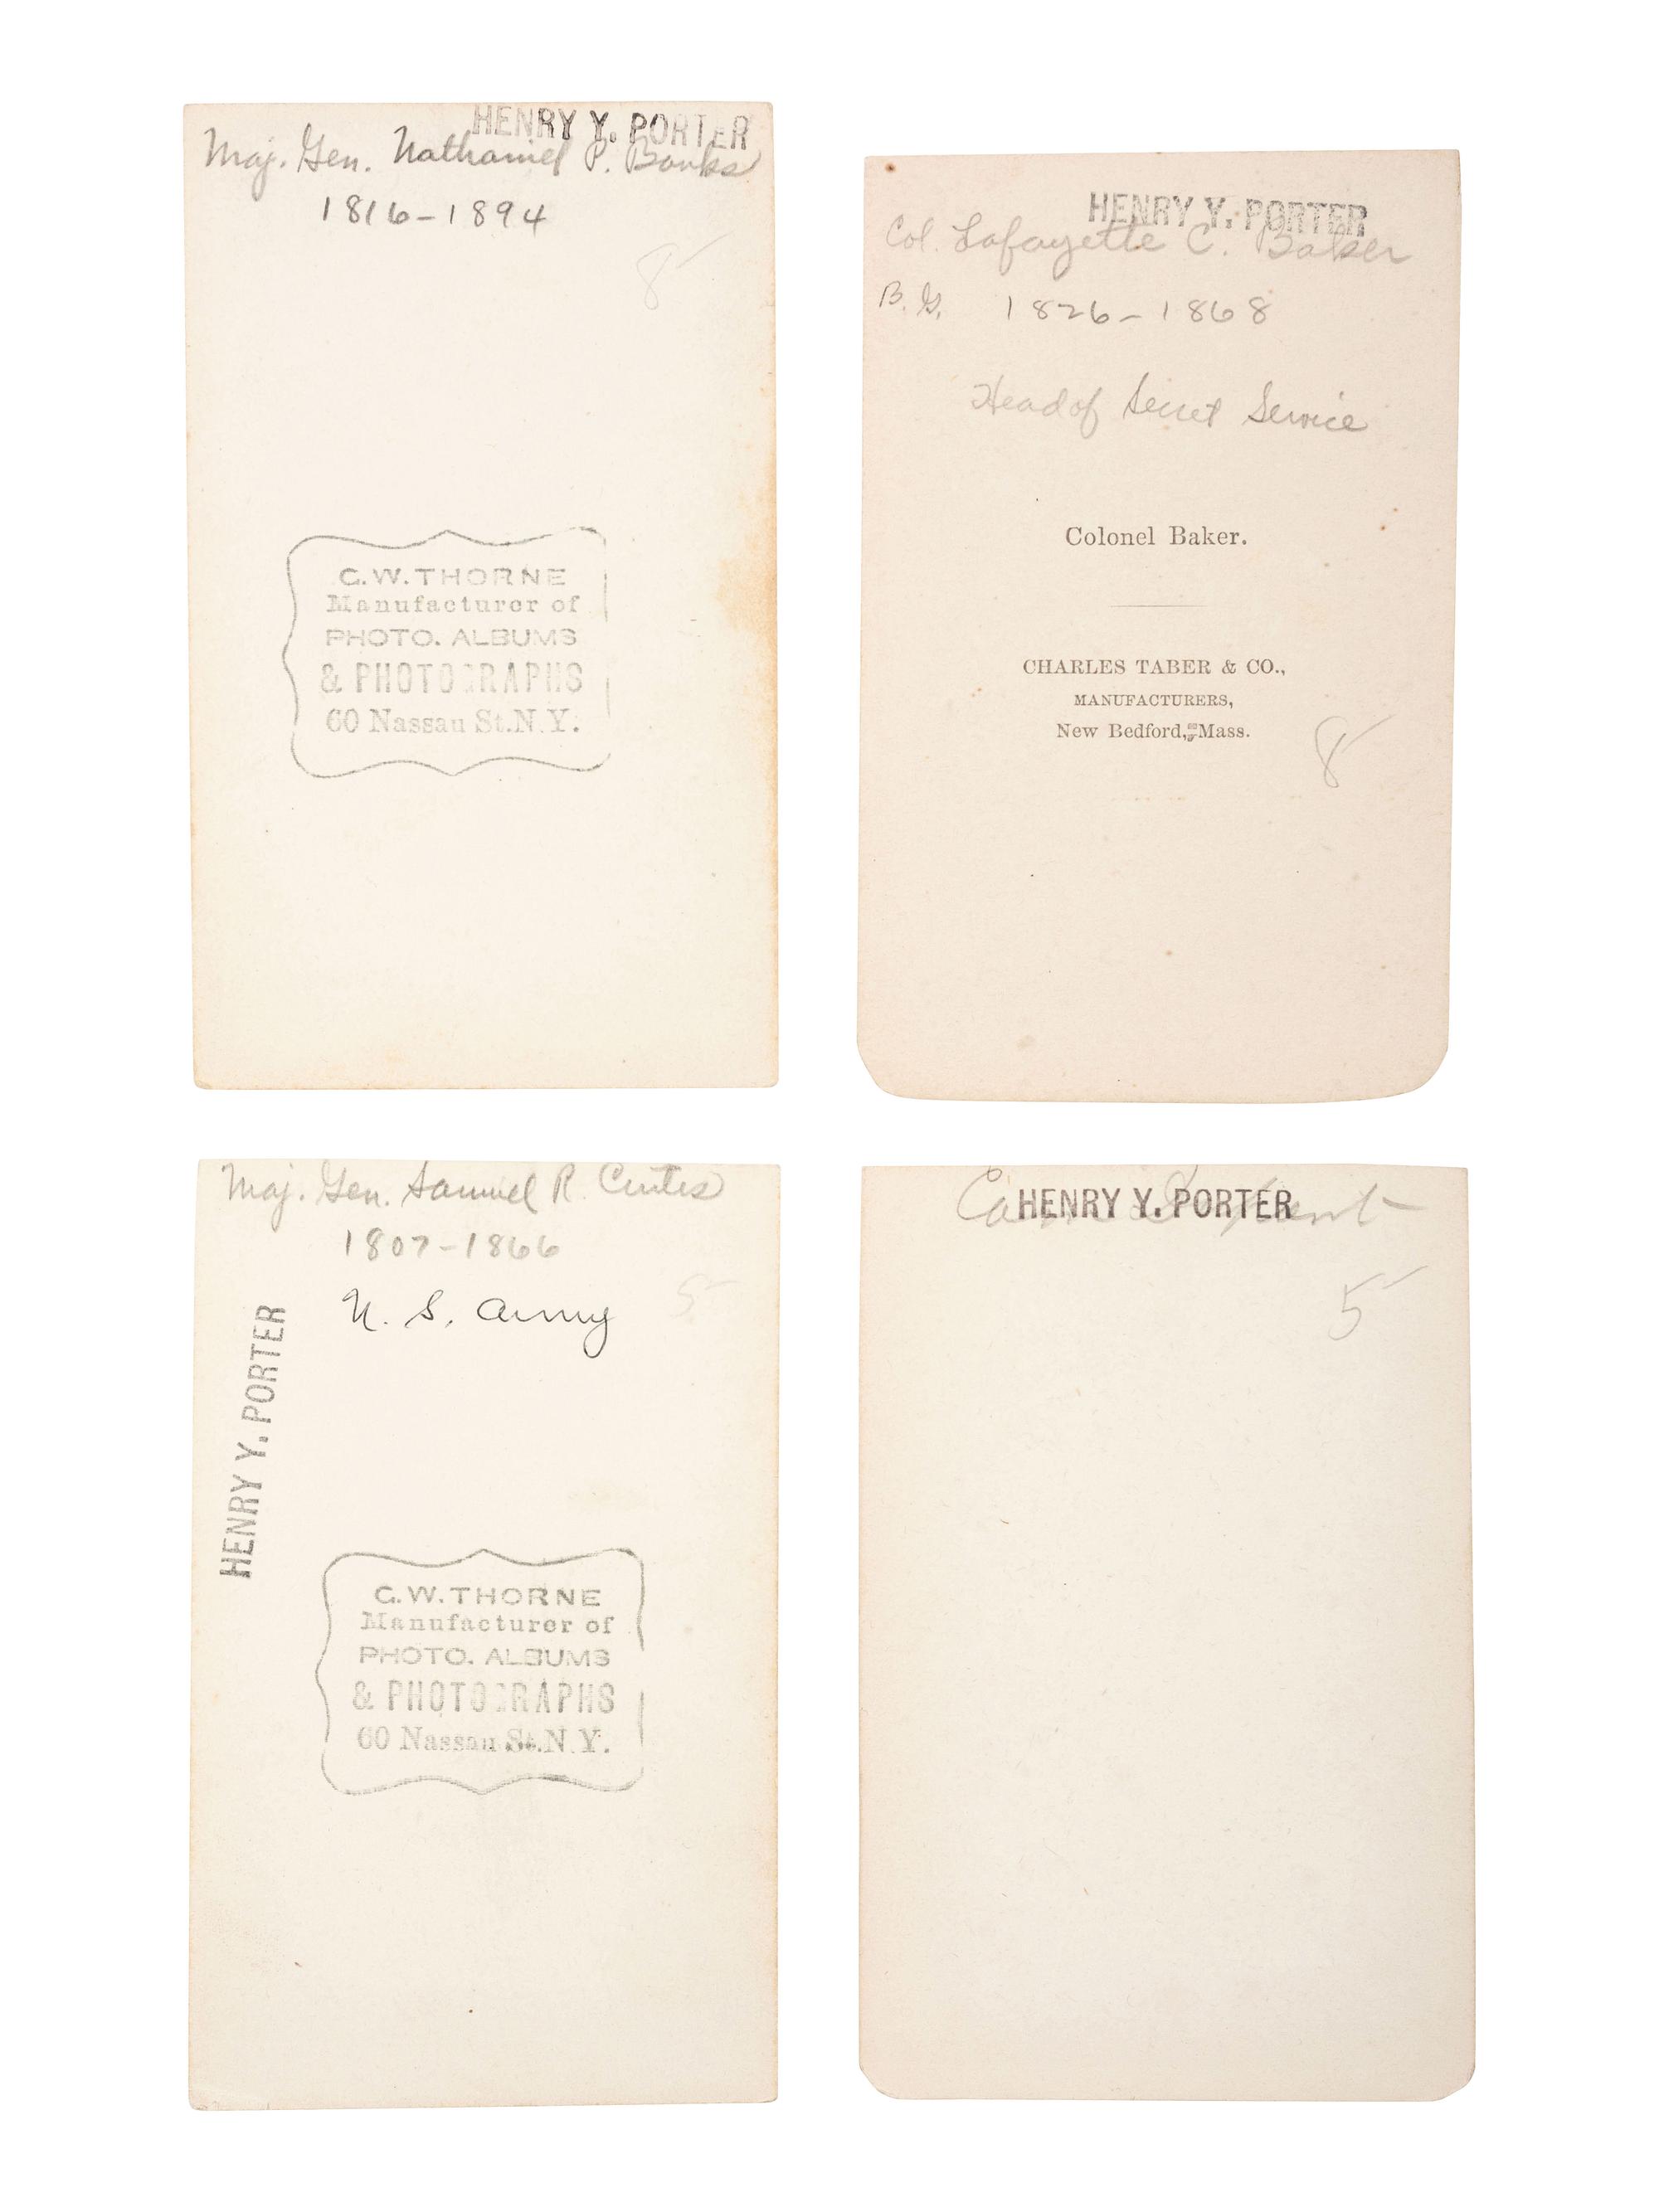 HENRY Y. PORTER
Maj. Gen. Nathaniel P. Banks
1816-1894
8
C. W. THORNE
Manufacturer of
PHOTO. ALBUMS
& PHOTOGRAPHS
60 Nassau St. N. Y.
HENRY Y. PORTER
Col. Lafayette C. Baker
B. G. 1826-1868
Head of Secret Service
Colonel Baker.
CHARLES TABER & CO.,
MANUFACTURERS,
New Bedford, Mass.
8
Maj. Gen. Samuel R. Curtis
1807-1866
U. S. Army
5
HENRY Y. PORTER
C. W. THORNE
Manufacturer of
PHOTO. ALBUMS
& PHOTOGRAPHS
60 Nassau St. N. Y.
HENRY Y. PORTER
5